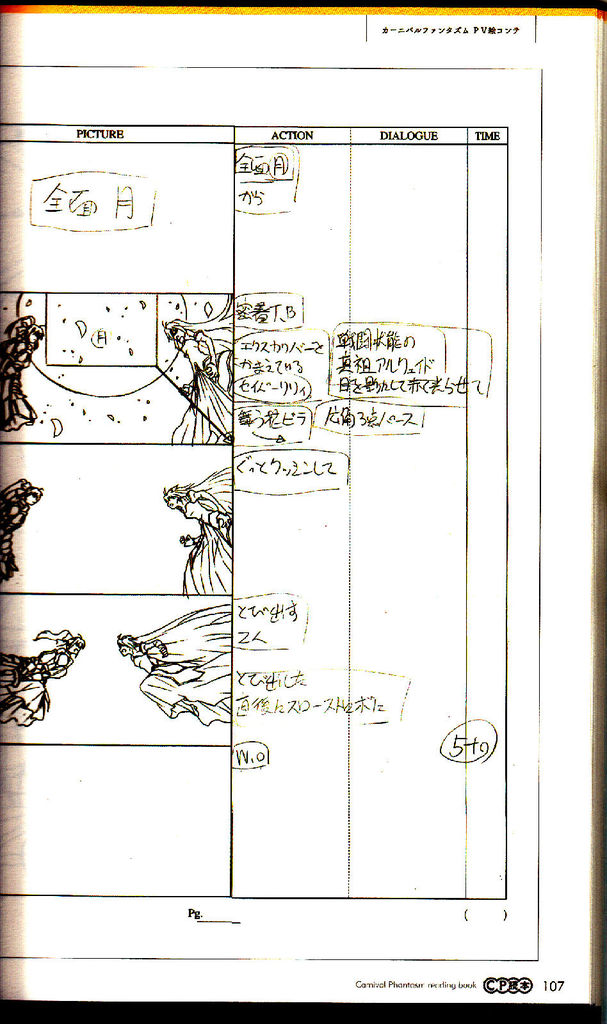 カーニバルファンタズム PV絵コンテ
PICTURE
ACTION
DIALOGUE
TIME
全面 月
全面月
から
月
密着T.B
エクスカリバーを
かまえている
セイバーリリィ
戦闘状態の
真祖アルクェイド
目を動かして赤く光らせて
舞う花ビラ
ぐっとクッションして
とび出す
2人
とび出した
直後にスローストロボに
W.O
5+0
Pg.
( )
Carnival Phantasm reading book
CP読本
107